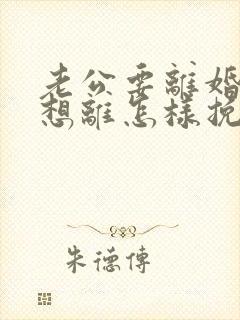 老公要離婚
想離怎樣挽
朱德傳